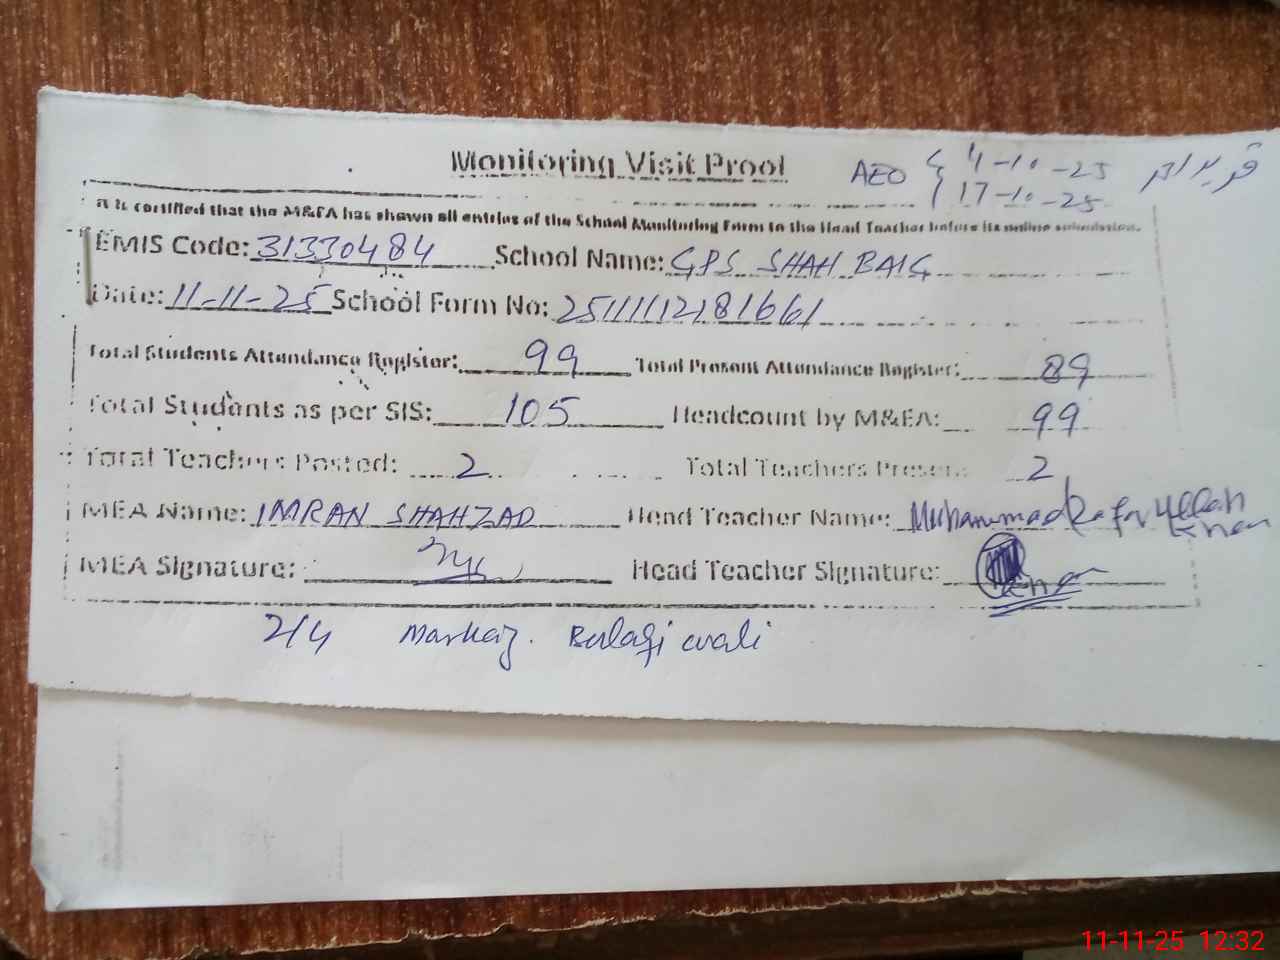 Monitoring Visit Proof
AEO { 4-10-25
17-10-25
It is certified that the M&EA has shown all entries of the School Monitoring Form to the Head Teacher before its online submission.
EMIS Code: 31330484 School Name: GPS SHAH BAIG
Date: 11-11-25 School Form No: 25111112181661
Total Students Attendance Register: 99 Total Present Attendance Register: 89
Total Students as per SIS: 105 Headcount by M&EA: 99
Total Teachers Posted: 2 Total Teachers Present: 2
MEA Name: IMRAN SHAHZAD Head Teacher Name: Muhammad Zafar Ullah Khan
MEA Signature: Head Teacher Signature: Khan
2/4 Markaz. Bulaqi wali
11-11-25 12:32